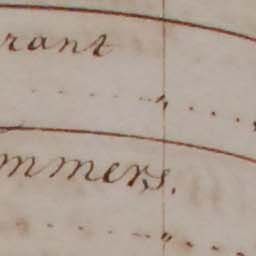 rant
mmers.